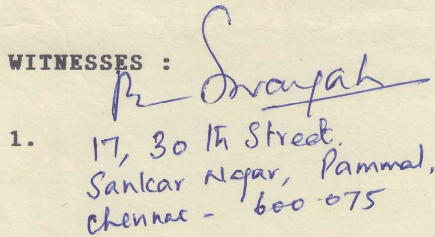 WITNESSES :
1. 17, 30 th Street.
Sankar Nagar, Pammal,
Chennai - 600 075